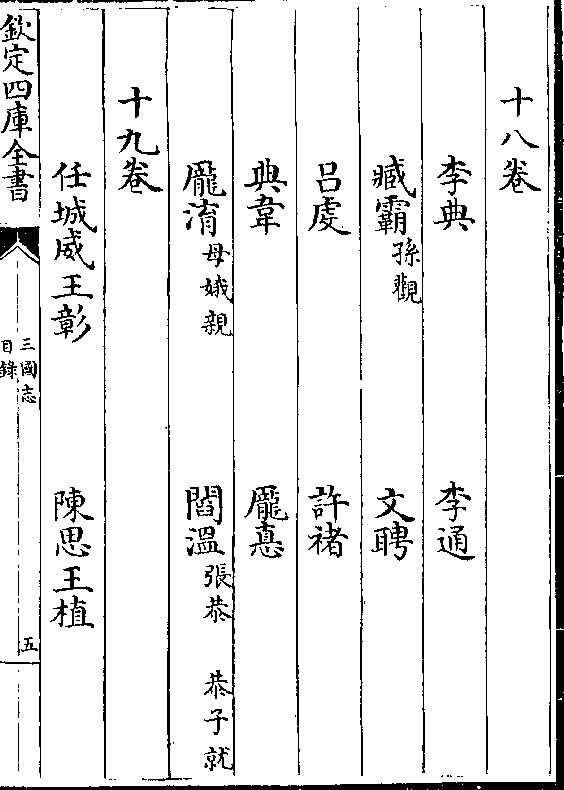 十八卷
李典　李通
臧霸孫觀　文聘
呂虔　許褚
典韋　龐悳
龐淯母娥親　閻溫張恭　恭子就
十九卷
任城威王彰　陳思王植
欽定四庫全書
三國志
目錄
五